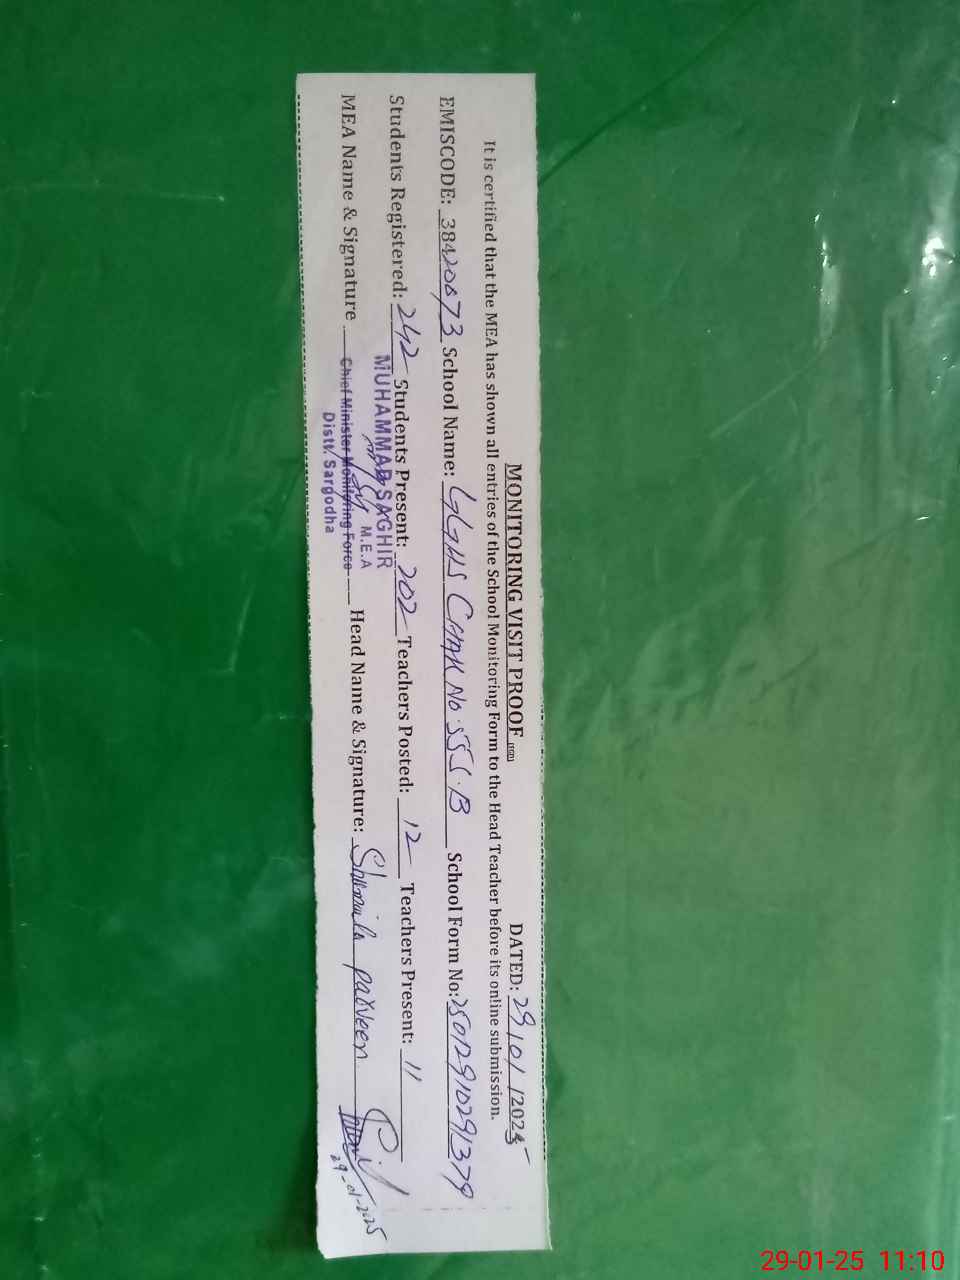 MONITORING VISIT PROOF DATED: 29/01/2025
It is certified that the MEA has shown all entries of the School Monitoring Form to the Head Teacher before its online submission.
EMISCODE: 38420073 School Name: GGHS Chak No. 55 S.B School Form No: 2501291029 1379
Students Registered: 242 Students Present: 202 Teachers Posted: 12 Teachers Present: 11
MUHAMMAD SAGHIR
M.E.A
MEA Name & Signature Chief Minister Monitoring Force Head Name & Signature: Shumila parveen
Distt. Sargodha
29-01-2025
29-01-25 11:10